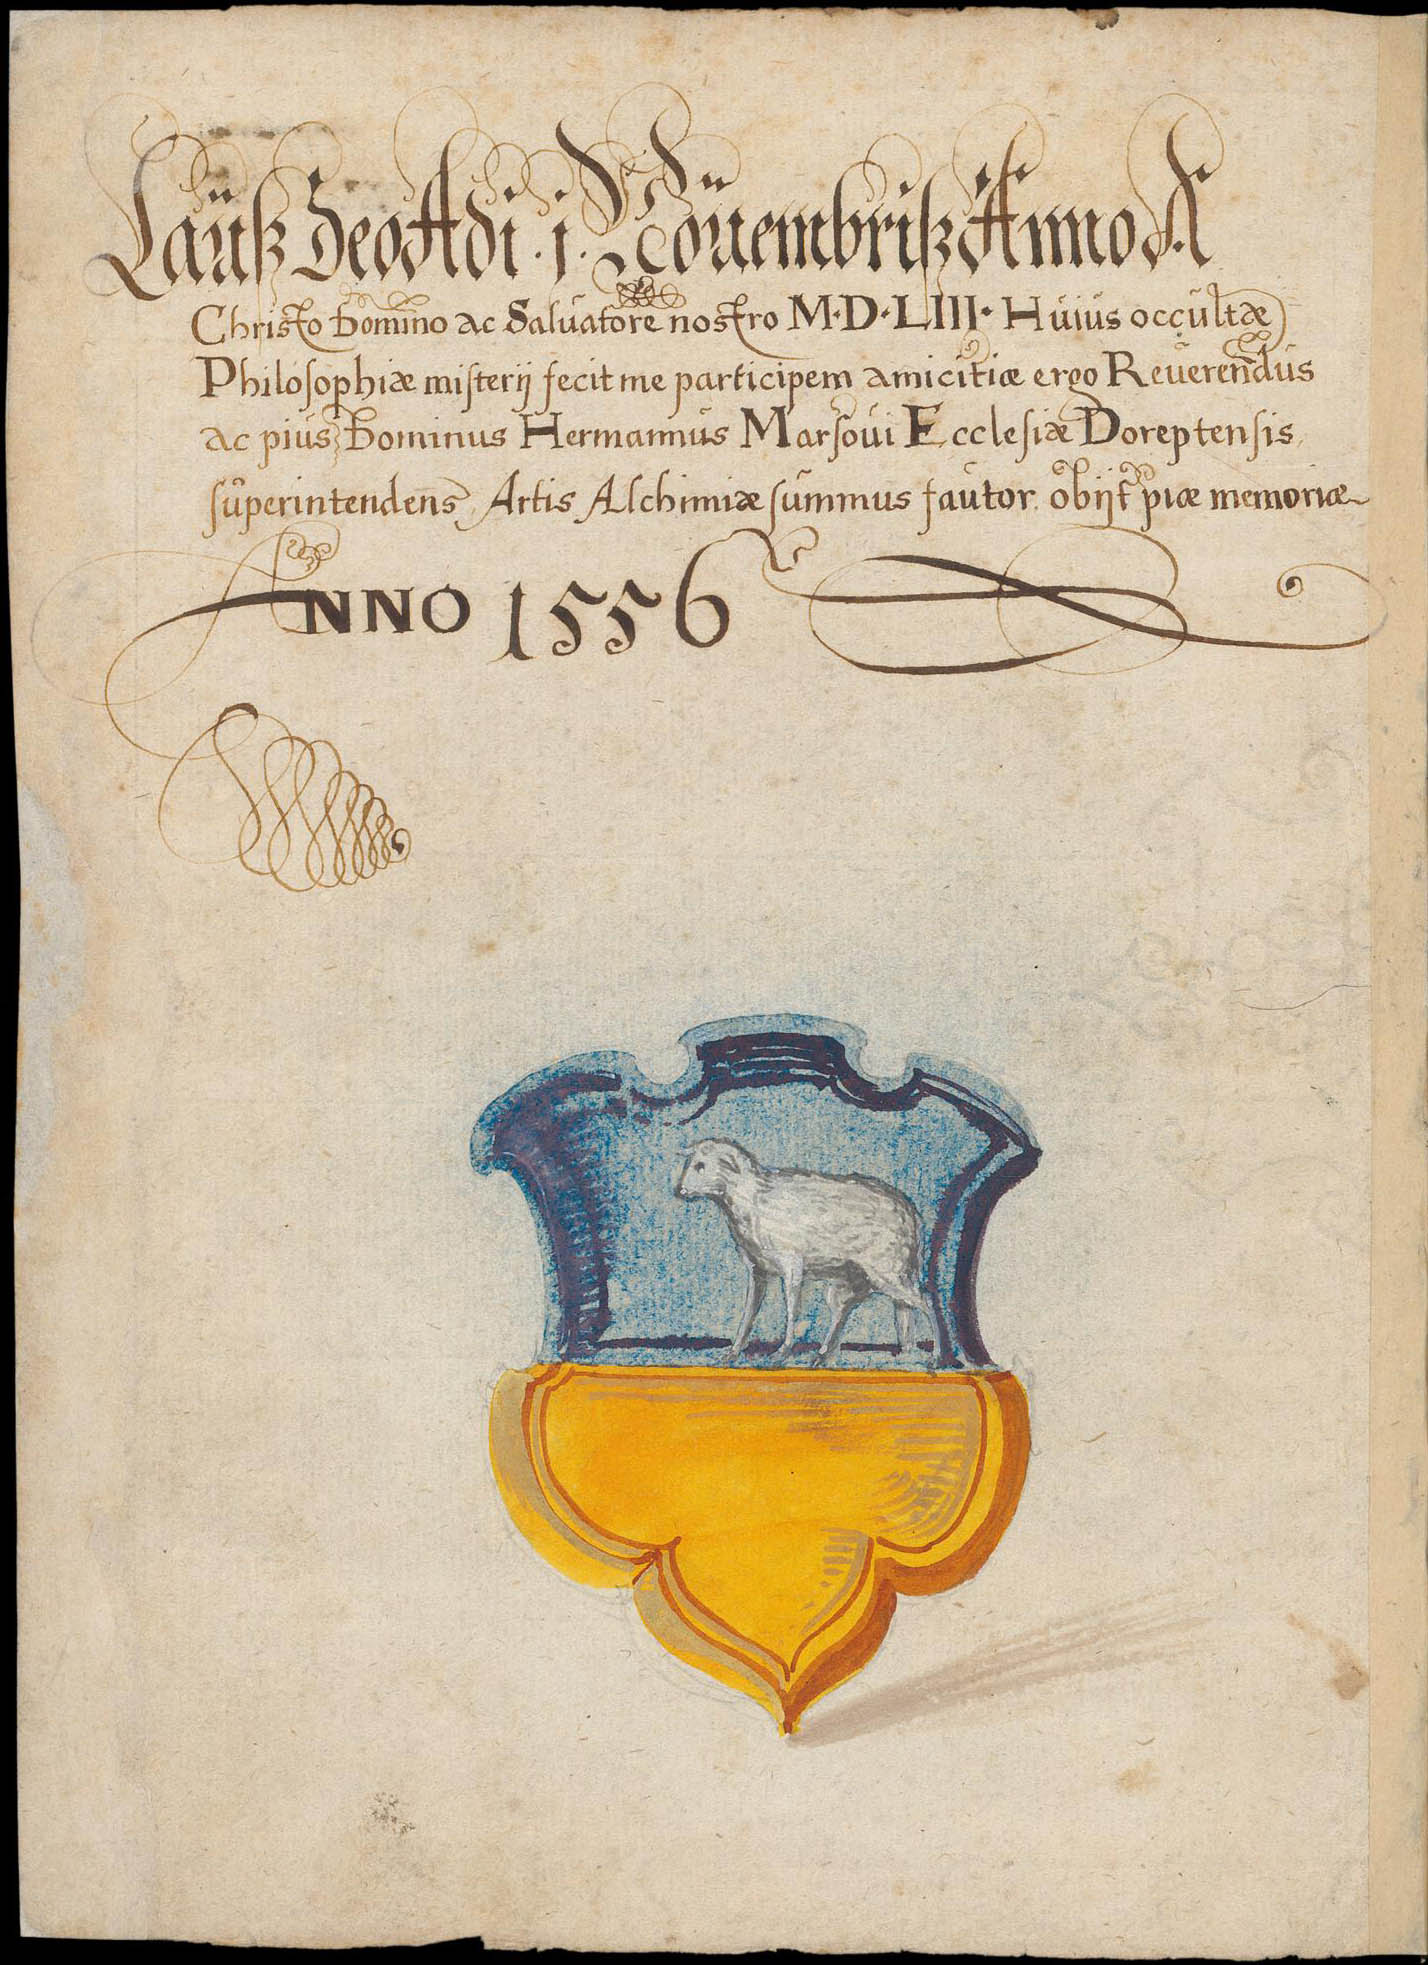 Laüß Deo Adi . j . Noüembriß Anno A
Christo Domino ac Salüatore nostro M·D·LIII· Hüiüs occültæ
Philosophiæ misterij fecit me participem amicitiæ ergo Reüerendüs
ac piüs Dominus Hermannüs Marsoüi Ecclesiæ Doreptensis
süperintendens Artis Alchimiæ sümmus faütor obijt piæ memoriæ
ANNO 1556